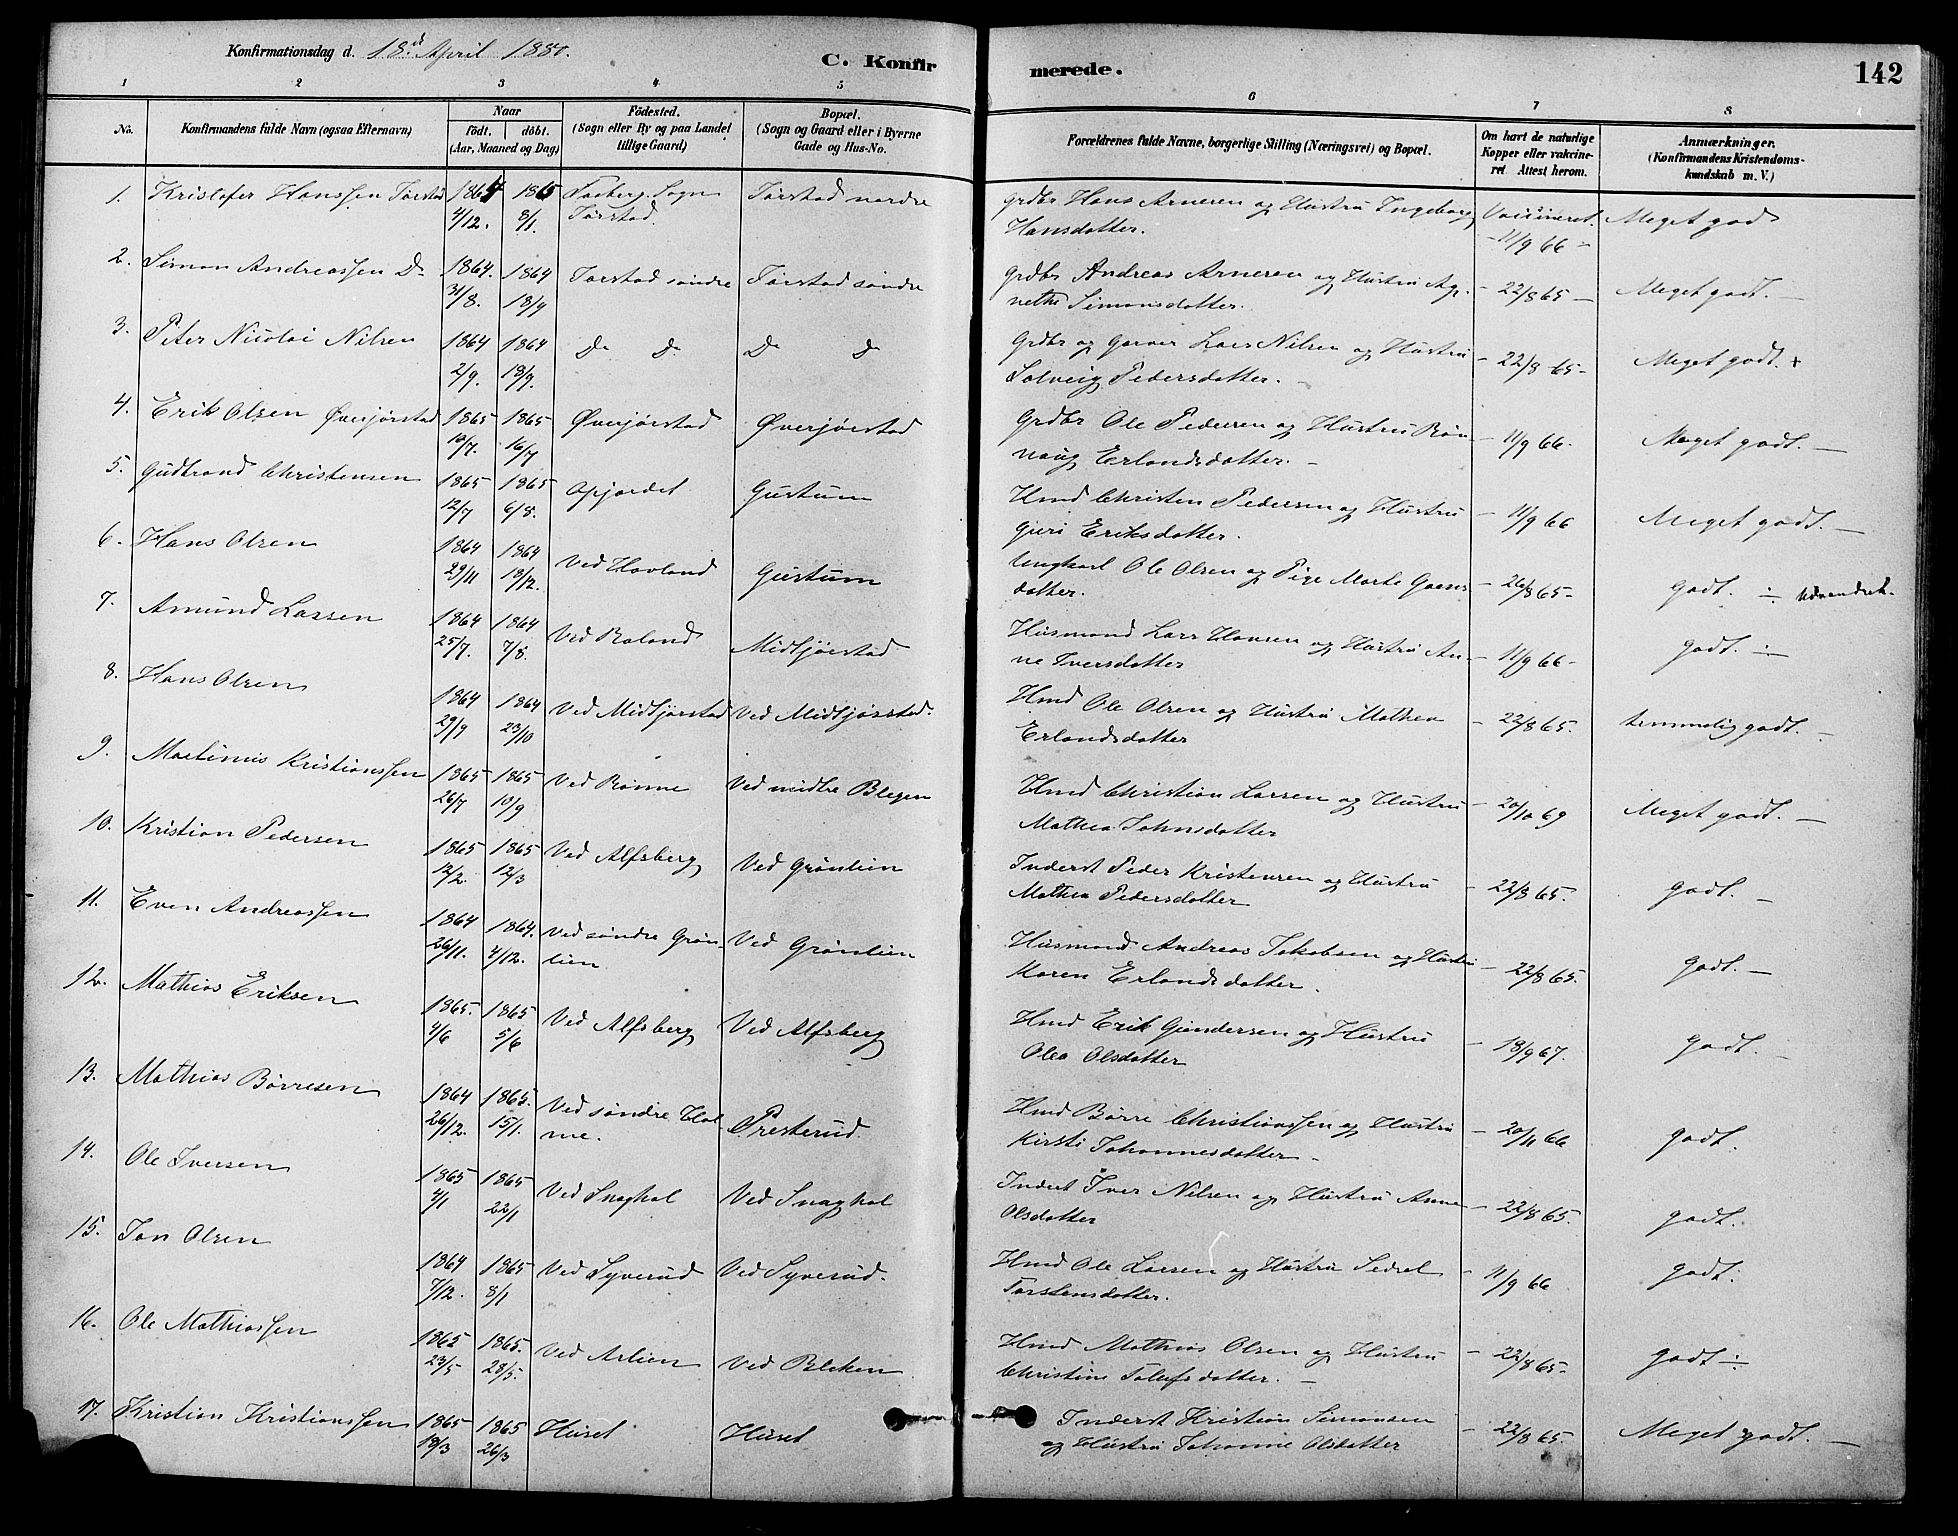 Konfirmationsdag d. 18.d April 1880.
C. Konfirmerede.
142
1 2 3 4 5 6 7 8
No.
Konfirmandens fulde Navn (ogsaa Efternavn)
Naar
födt. döbt.
(Aar, Maaned og Dag)
Födested.
(Sogn eller By og paa Landet
tillige Gaard)
Bopæl.
(Sogn og Gaard eller i Byerne
Gade og Hus-No.
Forældrenes fulde Navne, borgerlige Stilling (Næringsvei) og Bopæl.
Om havt de naturlige
Kopper eller vakcine-
ret. Attest herom.
Anmærkninger.
(Konfirmandens Kristendoms-
kundskab m. V.)
1. Kristofer Hanssen Torstad 1864 1865 Faaberg Sogn Torstad nordre Grdbr Hans Arnesen og Hustru Ingeborg Vaccineret Meget god
4/12. 8/1. Torstad. Hansdatter. 11/9 66
2. Simon Andreassen Do 1864. 1864 Torstad søndre Torstad søndre Grdbr Andreas Arnesen og Hustru Ag- 22/8 65 Meget godt.
31/8. 18/9 nethe Simonsdatter.
3. Peter Nicolai Nilsen 1864 1864 Do Do Do Do Grdbr og Garver Lars Nilsen og Hustru 22/8 65 Meget godt +
2/9. 18/9. Solveig Pedersdatter.
4. Erik Olsen Øverjørstad 1865 1865 Øverjørstad Øverjørstad Grdbr Ole Pedersen og Hustru Røn- 11/9 66. Meget godt.
10/7. 16/7 naug Erlandsdatter.
5. Gudbrand Christensen 1865 1865 Opjordet Gustum Hmd Christen Pedersen og Hustru 11/9 66 Meget godt.
12/7 6/8. Guri Eriksdatter.
6. Hans Olsen 1864 1864 Ved Hovland Gustum Ungkarl Ole Olsen og Pige Marte Gaars- 26/8 65 godt. ÷ Udvandret.
29/11 18/12. datter.
7. Amund Larsen 1864 1864 Ved Roland Midtjørstad Husmand Lars Hansen og Hustru An- 11/9 66 godt. ÷
25/7. 7/8. ne Iversdatter
8. Hans Olsen 1864 1864 Ved Midtjørstad Ved Midtjørstad. Hmd Ole Olsen og Hustru Mathea 22/8 65. temmelig godt.
29/9 23/10 Erlandsdatter
9. Martinus Kristianssen 1865 1865 Ved Rønne Ved midtre Blegen Hmd Christian Larsen og Hustru 20/10 69 Meget godt.
26/7 10/9 Mathea Johnsdatter
10. Kristian Pedersen 1865 1865 Ved Alfsberg Ved Grønlien Inderst Peder Kristensen og Hustru 22/8 65. godt.
12/2. 12/3 Mathea Pedersdatter
11. Even Andreassen 1864 1864. Ved søndre Grøn- Ved Grønlien Husmand Andreas Jakobsen og Hustru 22/8 65. godt.
26/11. 4/12. lien Karen Erlandsdatter.
12. Mathias Eriksen 1865. 1865 Ved Alfsberg Ved Alfsberg Hmd Erik Gundersen og Hustru 18/9 67. godt.
4/6 5/6 Olea Olsdatter
13. Mathias Børresen 1864 1865. Ved søndre Hol- Presterud. Hmd Børre Christianssen og Hustru 20/11 66 godt.
26/12. 15/1. me. Kirsti Johannesdatter
14. Ole Iversen 1865 1865 Ved Snaghol Ved Snaghol Inderst Iver Nilsen og Hustru Anne 22/8 65. godt.
4/1 22/1 Olsdatter
15. Jon Olsen 1864 1865 Ved Syverud Ved Syverud. Hmd Ole Larsen og Hustru Sidsel 11/9 66 godt.
7/12. 8/1 Torstensdatter.
16. Ole Mathiassen 1865 1865. Ved Aslien Ved Bleken Hmd Mathias Olsen og Hustru 22/8 65. godt ÷
23/5 28/5. Christine Tolufsdatter.
17. Kristian Kristianssen 1865 1865 Huset Huset Inderst Kristian Simonsen 22/8 65. Meget godt.
19/3 26/3 og Hustru Johanne Olsdatter